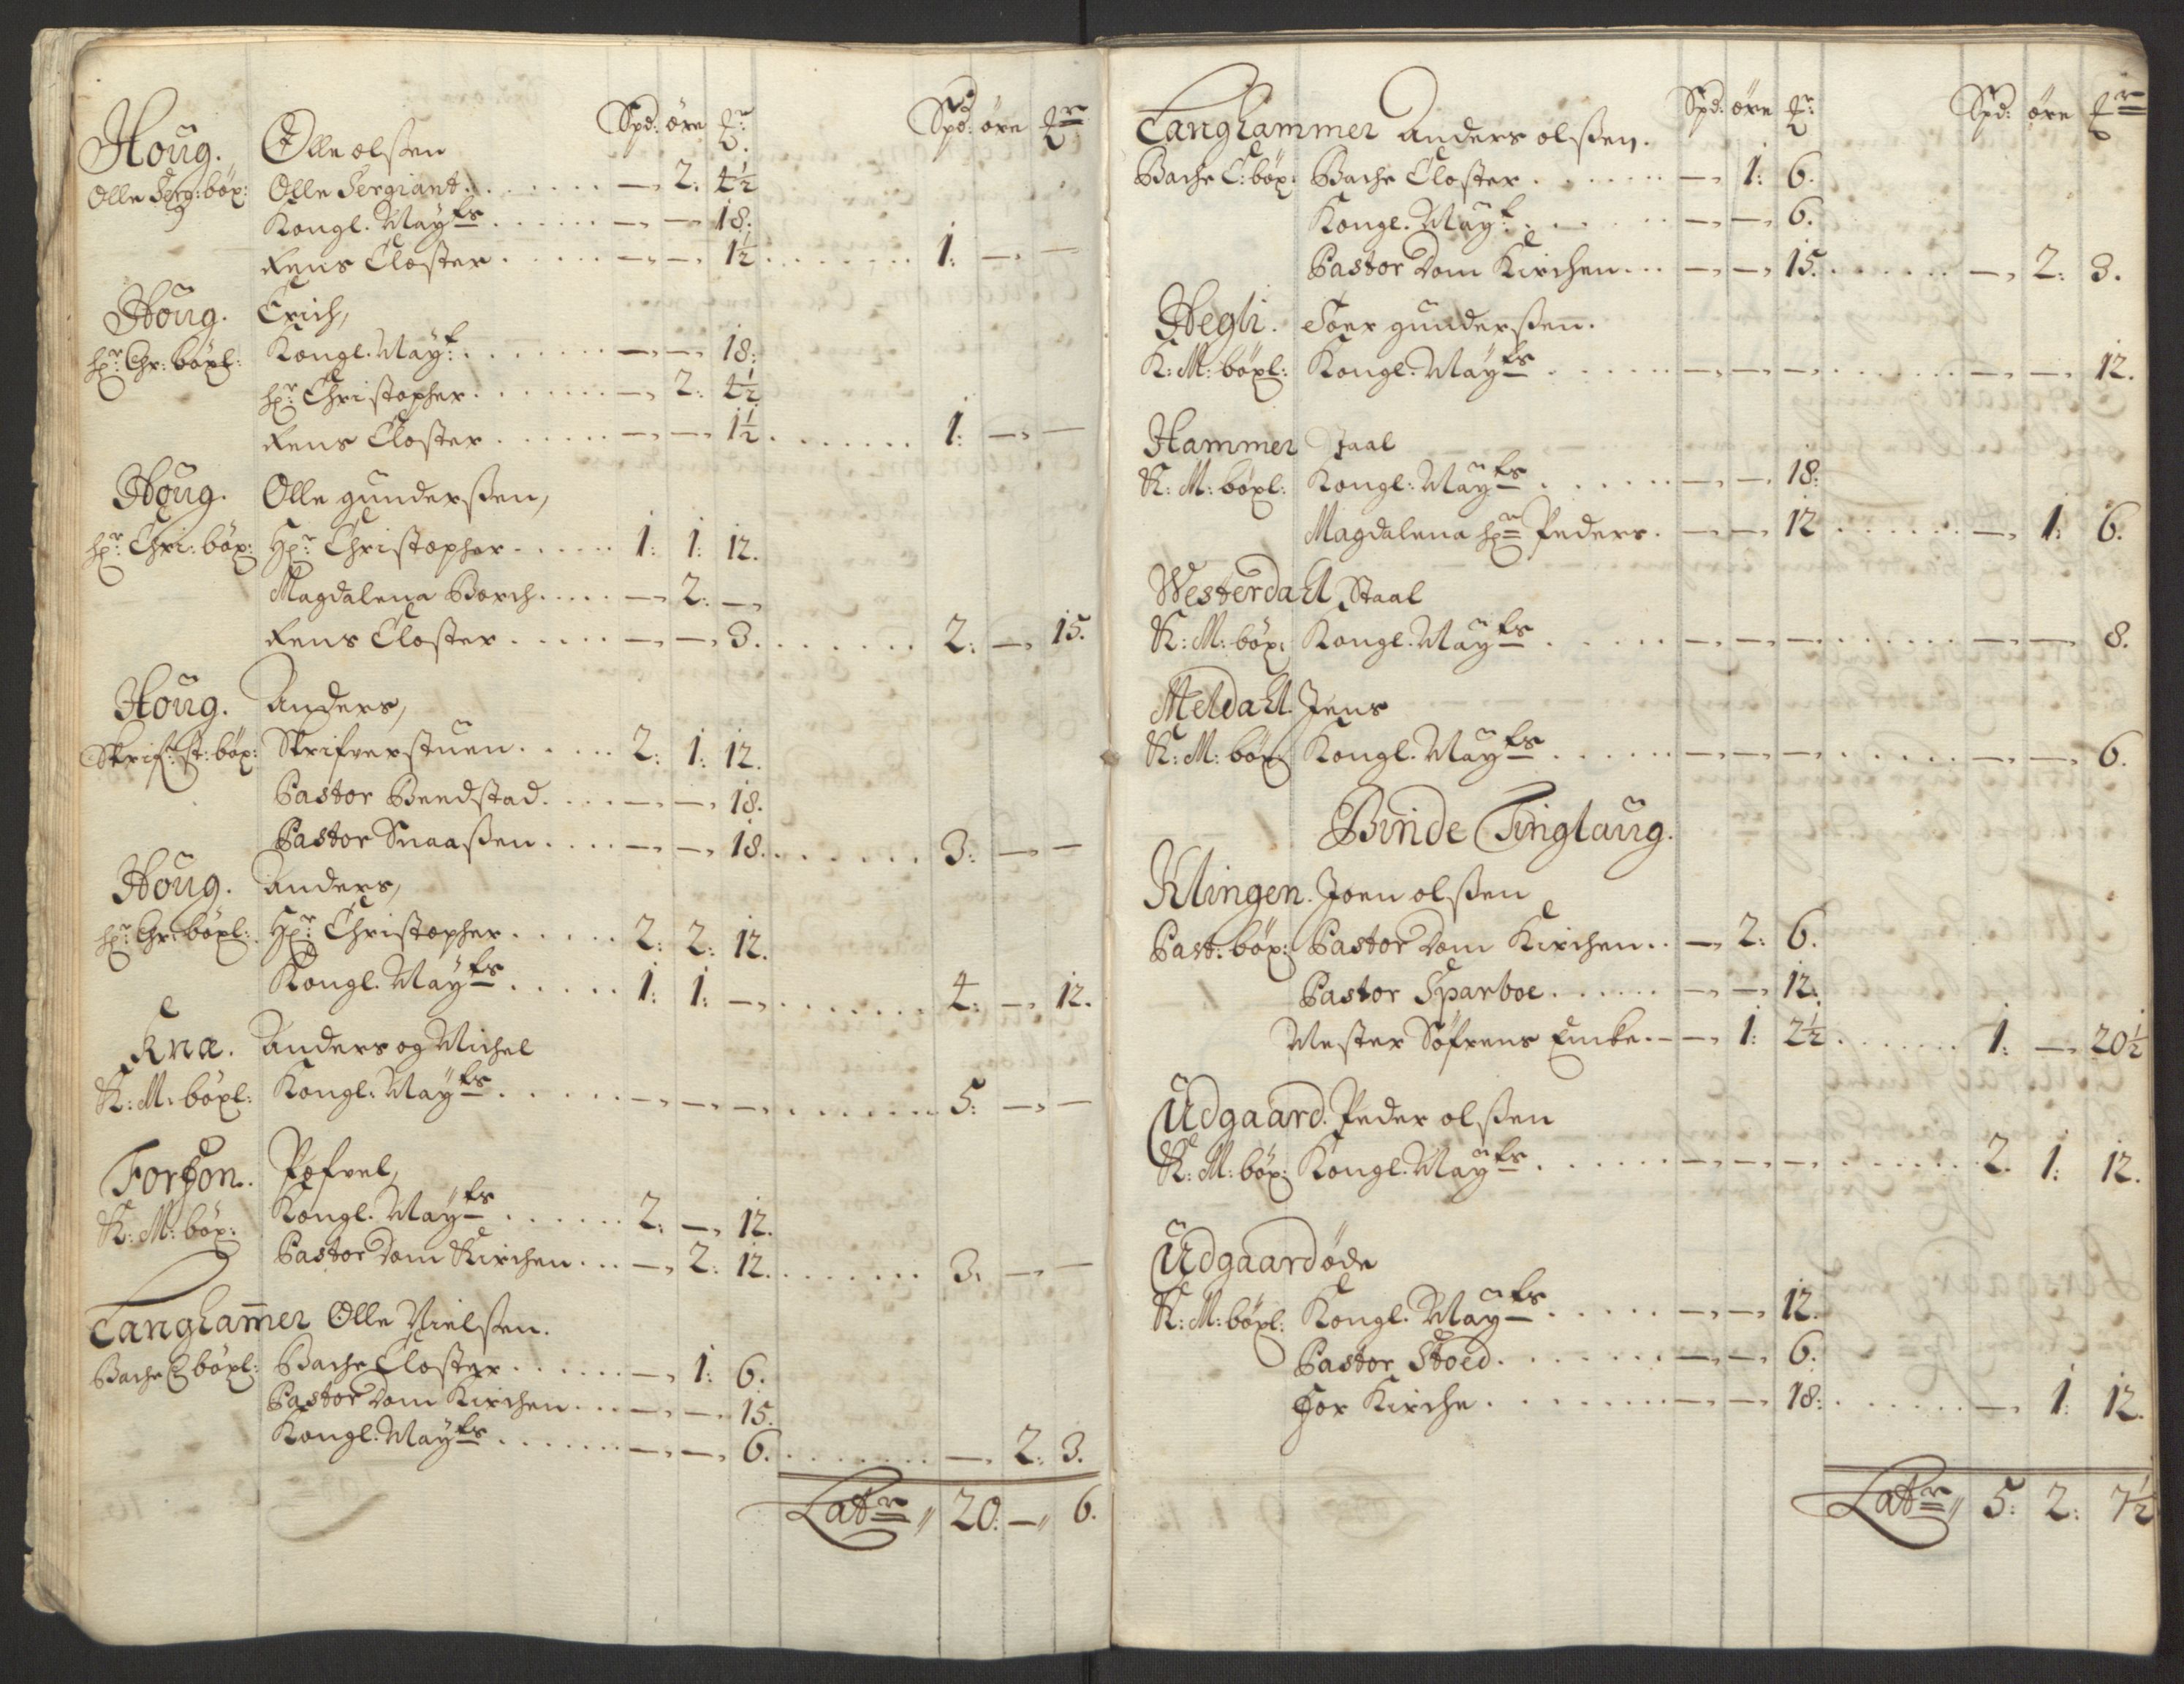 Spd: öre
Spd: öre
Houg. Olle olsßen
Olle Serg: böx: Olle Sergiant. — 2: 4½
Kongl. Maÿts — — 18:
Rens Closter — — 1½ 1: — —
Houg. Erich,
hr: Chr: böxl: Kongl. Maÿt: — — 18:
hr: Christopher — 2: 4½
Rens Closter — — 1½ 1: — —
Houg. Olle gundersßen,
hr: Chri: böx: Hr: Christopher 1: 1: 12.
Magdalena Borch — 2: —
Rens Closter — — 3. 2: — 15.
Houg. Anders,
Skrif: st: böx: Skrifverstuen 2: 1: 12.
Pastor Beedstad — — 18.
Pastor Snaasßen — — 18. 3: — —
Houg. Anders,
hr: Chr: böxl: Hr: Christopher 2: 2: 12.
Kongl. Maÿts 1: 1: — 4: — 12.
Knæ. Anders og Michel
K: M: böxl: Kongl. Maÿts — — — 5: — —
Forhon. Pofvel,
K: M: böx: Kongl. Maÿts 2: — 12.
Pastor Dom Kirchen — 2: 12. 3. — —
Langhamer Olle Nielsßen.
Bache C böxl: Bache Closter — 1: 6.
Pastor Dom Kirchen — — 15.
Kongl. Maÿts — — 6. — 2: 3.
Latr 20: — 6.
Spd: öre
Spd: öre
Langhammer Anders olsßen.
Bache C: böx: Bache Closter — 1: 6.
Kongl. Maÿt: — — 6.
Pastor Dom Kirchen — — 15. — 2: 3.
Hegli. Toer gundersßen.
K: M: böxl: Kongl. Maÿts — — — — — 12.
Hammer Staal
K: M: böxl: Kongl: Maÿts — — 18:
Magdalena hr Peders. — — 12 — 1: 6.
Westerdahl Staal
K: M: böx: Kongl. Maÿts — — — — — 8.
Meldahl. Jens
K: M: böx Kongl. Maÿts — — — — — 6.
Binde Tinglaug.
Klingen. Joen olsßen
Past: böx: Pastor Dom Kirchen — 2: 6.
Pastor Sparboe — — 12.
Mester Söfrens Encke — 1: 2½ 1: — 20½
Udgaard. Peder olsßen
K: M: böx: Kongl. Maÿts — — — 2. 1: 12.
Udgaard öde
K: M: böxl: Kongl. Maÿts — — 12.
Pastor Stoed — — 6.
For Kirche — — 18: — 1: 12.
Latr 5: 2: 7½